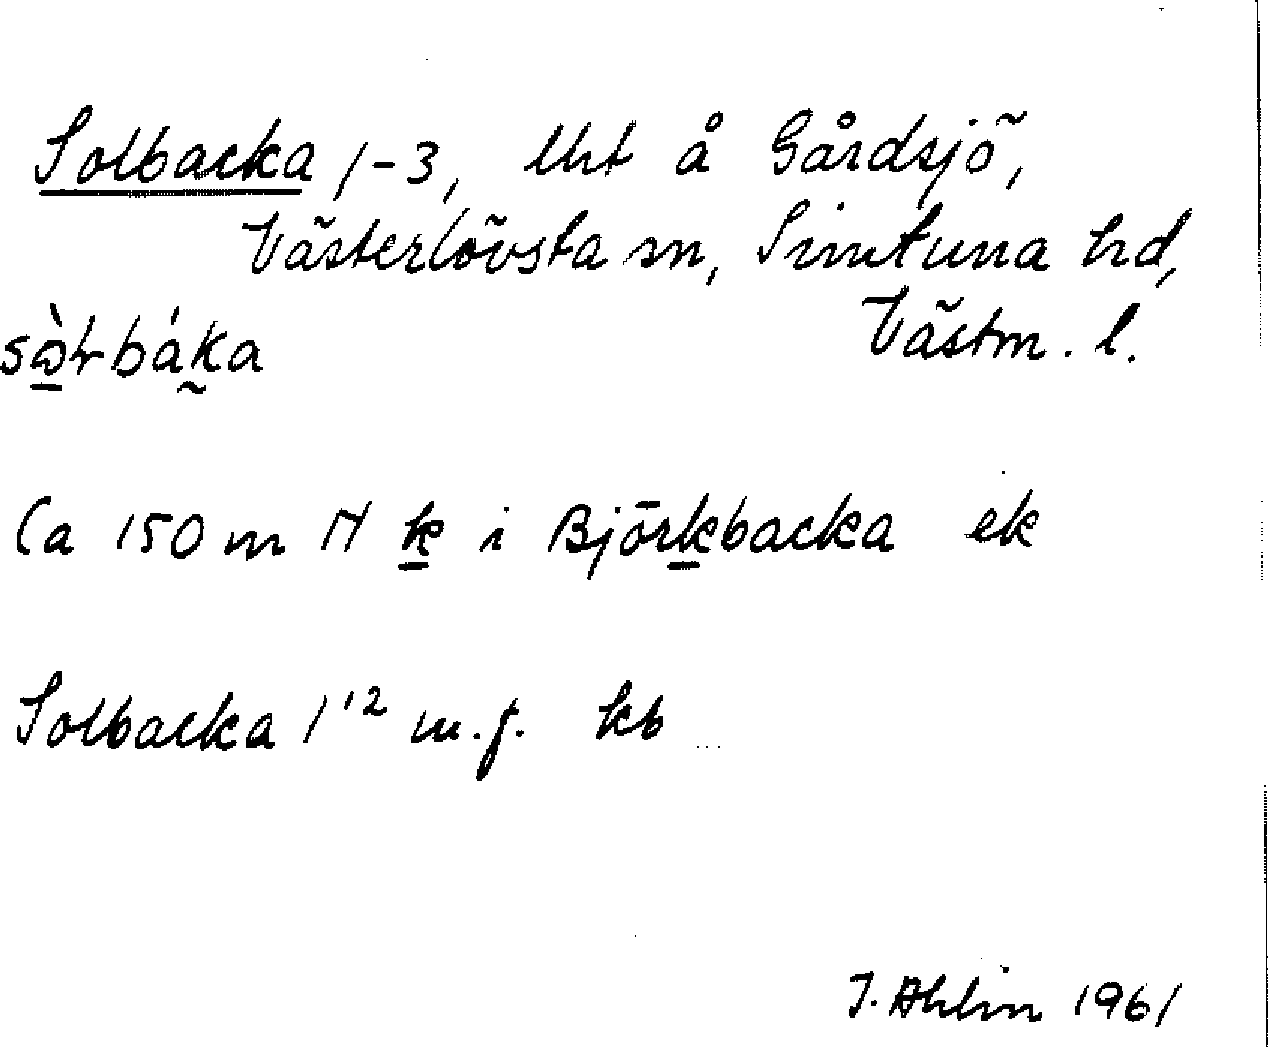 Solbacka 1-3, lht å Gårdsjö,
Västerlövsta sn, Simtuna hd,
Västm. l.
sɷ̀łbáka
Ca 150 m N k i Björkbacka ek
Solbacka 1'2 m.f. kb
I. Ahlin 1961